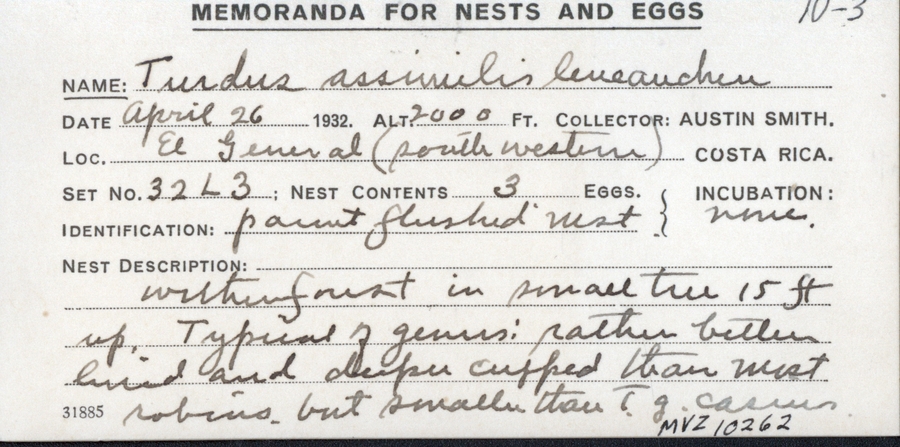 MEMORANDA FOR NESTS AND EGGS 10-3
NAME: Turdus assimilis leucauchen
DATE April 26 1932. ALT. 2000 FT. COLLECTOR: AUSTIN SMITH.
LOC. El General (southwestern) COSTA RICA.
SET NO. 32L3; NEST CONTENTS 3 EGGS. { INCUBATION:
IDENTIFICATION: parent flushed nest { none.
NEST DESCRIPTION:
within forest in small tree 15 ft
up. Typical of genus: rather better
lined and deeper cupped than most
31885 robins but smaller than T. g. casius
MVZ 10262